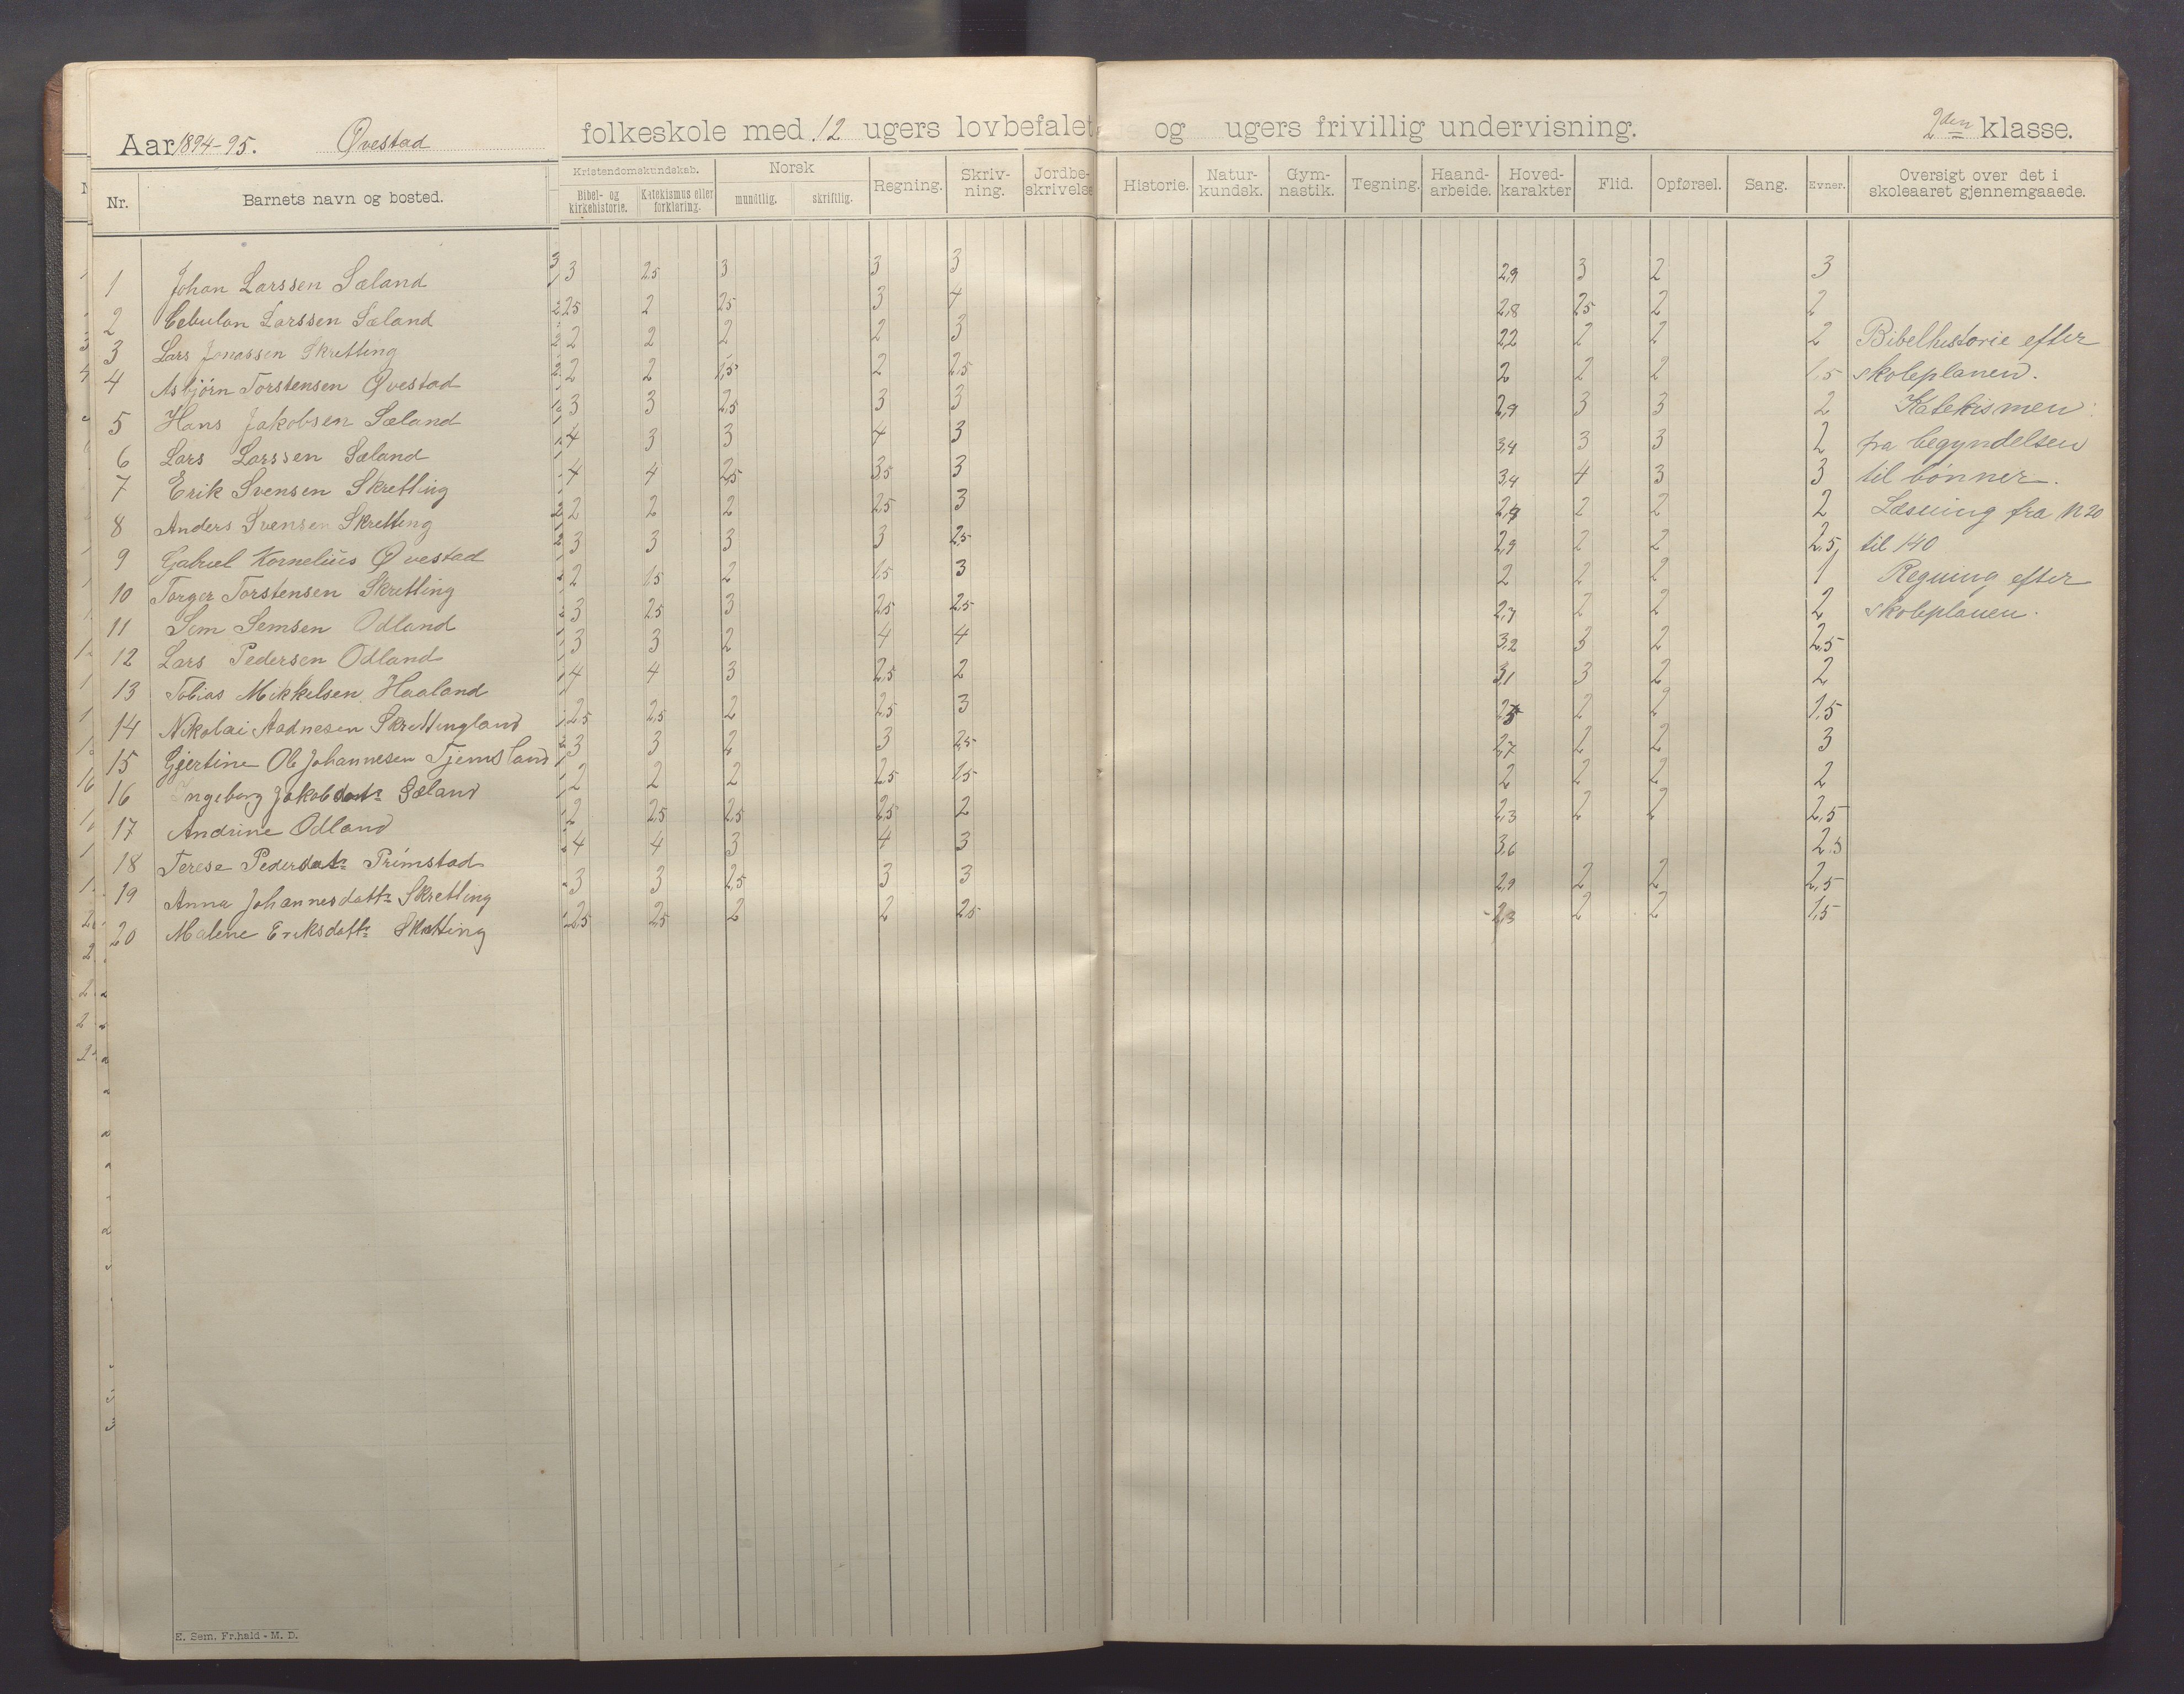 Aar 1894-95. Øvestad folkeskole med 12 ugers lovbefalet og ugers frivillig undervisning. 2den klasse.
Nr. Barnets navn og bosted. Kristendomskundskab. Bibel- og kirkehistorie. Katekismus eller forklaring. Norsk mundtlig. skriftlig. Regning. Skriv-ning. Jordbe-skrivelse Historie. Natur-kundsk. Gym-nastik. Tegning. Haand-arbeide. Hoved-karakter Flid. Opførsel. Sang. Evner. Oversigt over det i skoleaaret gjennemgaaede.
1 Johan Larssen Sæland 3 2,5 3 3 3 2,9 3 2 3
2 Cebulon Larssen Sæland 2,5 2 2,5 3 4 2,8 2,5 2 2
3 Lars Jonassen Skretting 2 2 2 2 3 2,2 2 2 2 Bibelhistorie efter
4 Asbjörn Torstensen Øvestad 2 2 1,5 2 2,5 2 2 2 1,5 skoleplanen.
5 Hans Jakobsen Sæland 3 3 2,5 3 3 2,9 3 3 2 Katekismen
6 Lars Larssen Sæland 4 3 3 4 3 3,4 3 3 2 fra begyndelsen
7 Erik Svensen Skretting 4 4 2,5 3,5 3 3,4 4 3 3 til bønner.
8 Anders Svensen Skretting 2 2 2 2,5 3 2 2 2 Læsning fra N 20
9 Gabriel Kornelius Øvestad 3 3 3 3 2,5 2,9 2 2 2,5 til 140
10 Torger Torstensen Skretting 2 1,5 2 1,5 3 2 2 2 1 Regning efter
11 Sem Semsen Odland 3 2,5 3 2,5 2,5 2,7 2 2 2 skoleplanen.
12 Lars Pedersen Odland 3 3 2 4 4 3,2 3 2 2,5
13 Tobias Mikkelsen Haaland 4 4 3 2,5 2 3,1 3 2 2
14 Nikolai Aadnesen Skrettingland 2,5 2,5 2 2,5 3 2,5 2 2 1,5
15 Gjertine Ol. Johannesen Tjemsland 3 3 2 3 2,5 2,7 2 2 3
16 Ingeborg Jakobdatr Sæland 2 2 2 2,5 1,5 2 2 2 2
17 Andrine Odland 2 2,5 2,5 2,5 2 2,3 2 2 2,5
18 Terese Pedersdatr Primstad 4 4 3 4 3 3,6 2,5
19 Anna Johannesdattr Skretting 3 3 2,5 3 3 2,9 2 2 2,5
20 Malene Eriksdattr Skretting 2,5 2,5 2 2 2,5 2,3 2 2 1,5
E. Sem, Fr.hald - M. D.